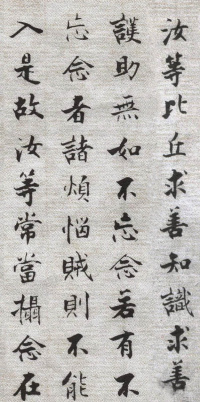 汝等比丘求善知識求善
護助無如不忘念若有不
忘念者諸煩惱賊則不能
入是故汝等常當攝念在